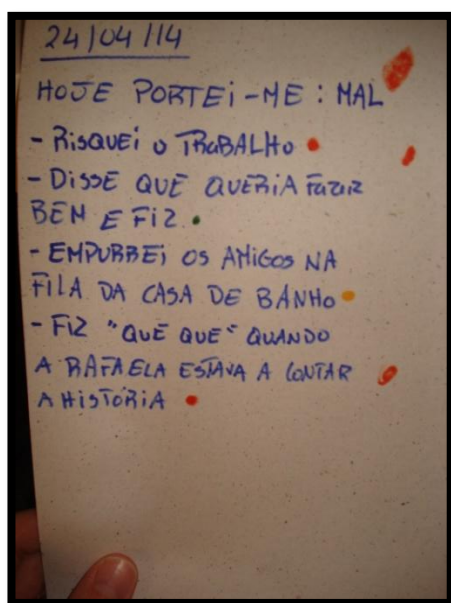 24/04/14
HOJE PORTEI-ME : MAL
- RISQUEI O TRABALHO
- DISSE QUE QUERIA FAZER
BEM E FIZ.
- EMPURREI OS AMIGOS NA
FILA DA CASA DE BANHO
- FIZ "QUE QUE" QUANDO
A RAFAELA ESTAVA A CONTAR
A HISTÓRIA